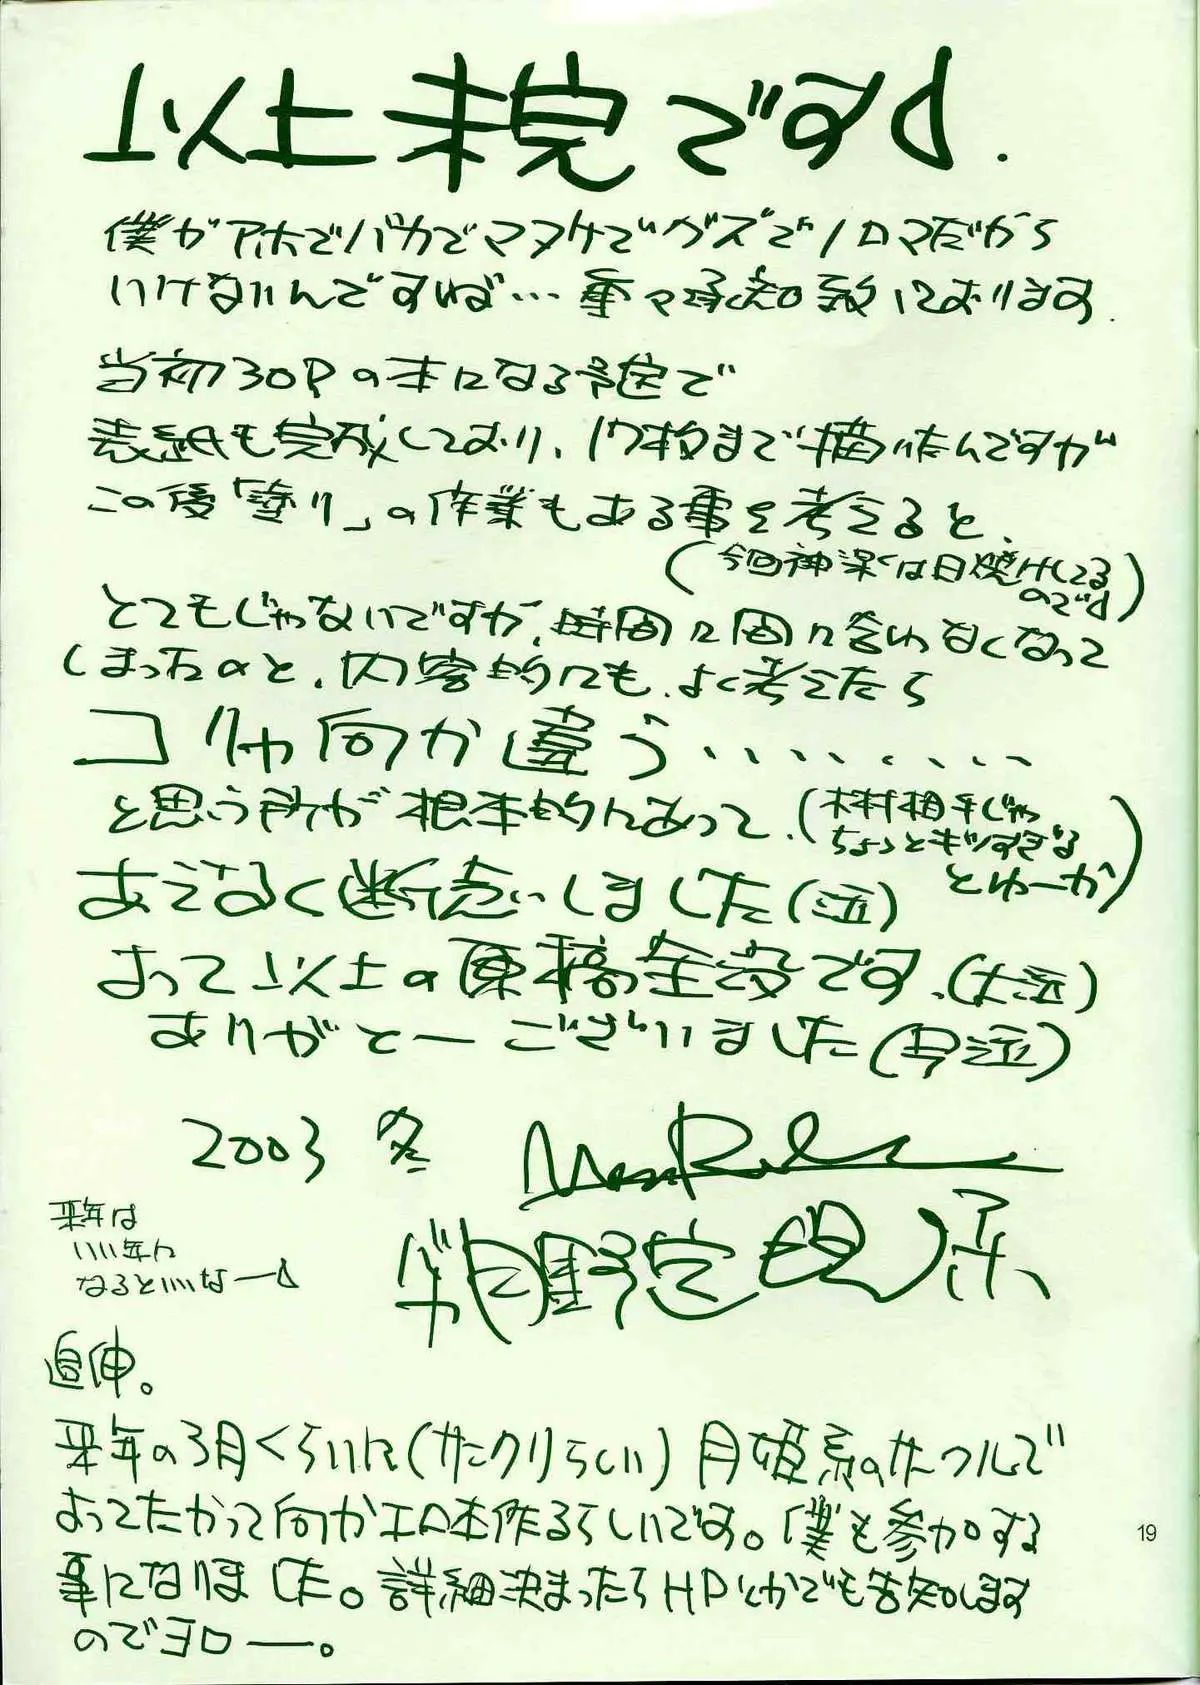 以上未完ですd.
僕がアホでバカでマヌケでグズでノロマだから
いけないんですねば…重々承知致しております.
当初30Pの本になる予定で
表紙も完成しており、17枚まで描いたんですが
この後「塗り」の作業もある事を考えると、
(今回神楽は日焼けしてる
のでd)
とてもじゃないですが、時間に間に合わなくなって
しまったのと、内容的にも、よく考えたら
コリャ何か違う........
と思う所が根本的にあって、(木村相手じゃ
ちょっとキツすぎる
とゆーか)
あえなく断念しました(泣)
よって以上の原稿全没です、(大泣)
ありがとーございました(号泣)
2003 冬
来年は
いい年に
なるといいなーd
追伸。
来年の3月くらいに(サンクリらしい)月姫系のサークルで
よってたかって何かエロ本作るらしいです。僕も参加する
事になりました。詳細決まったらHPとかでも告知します
のでヨロー。
19